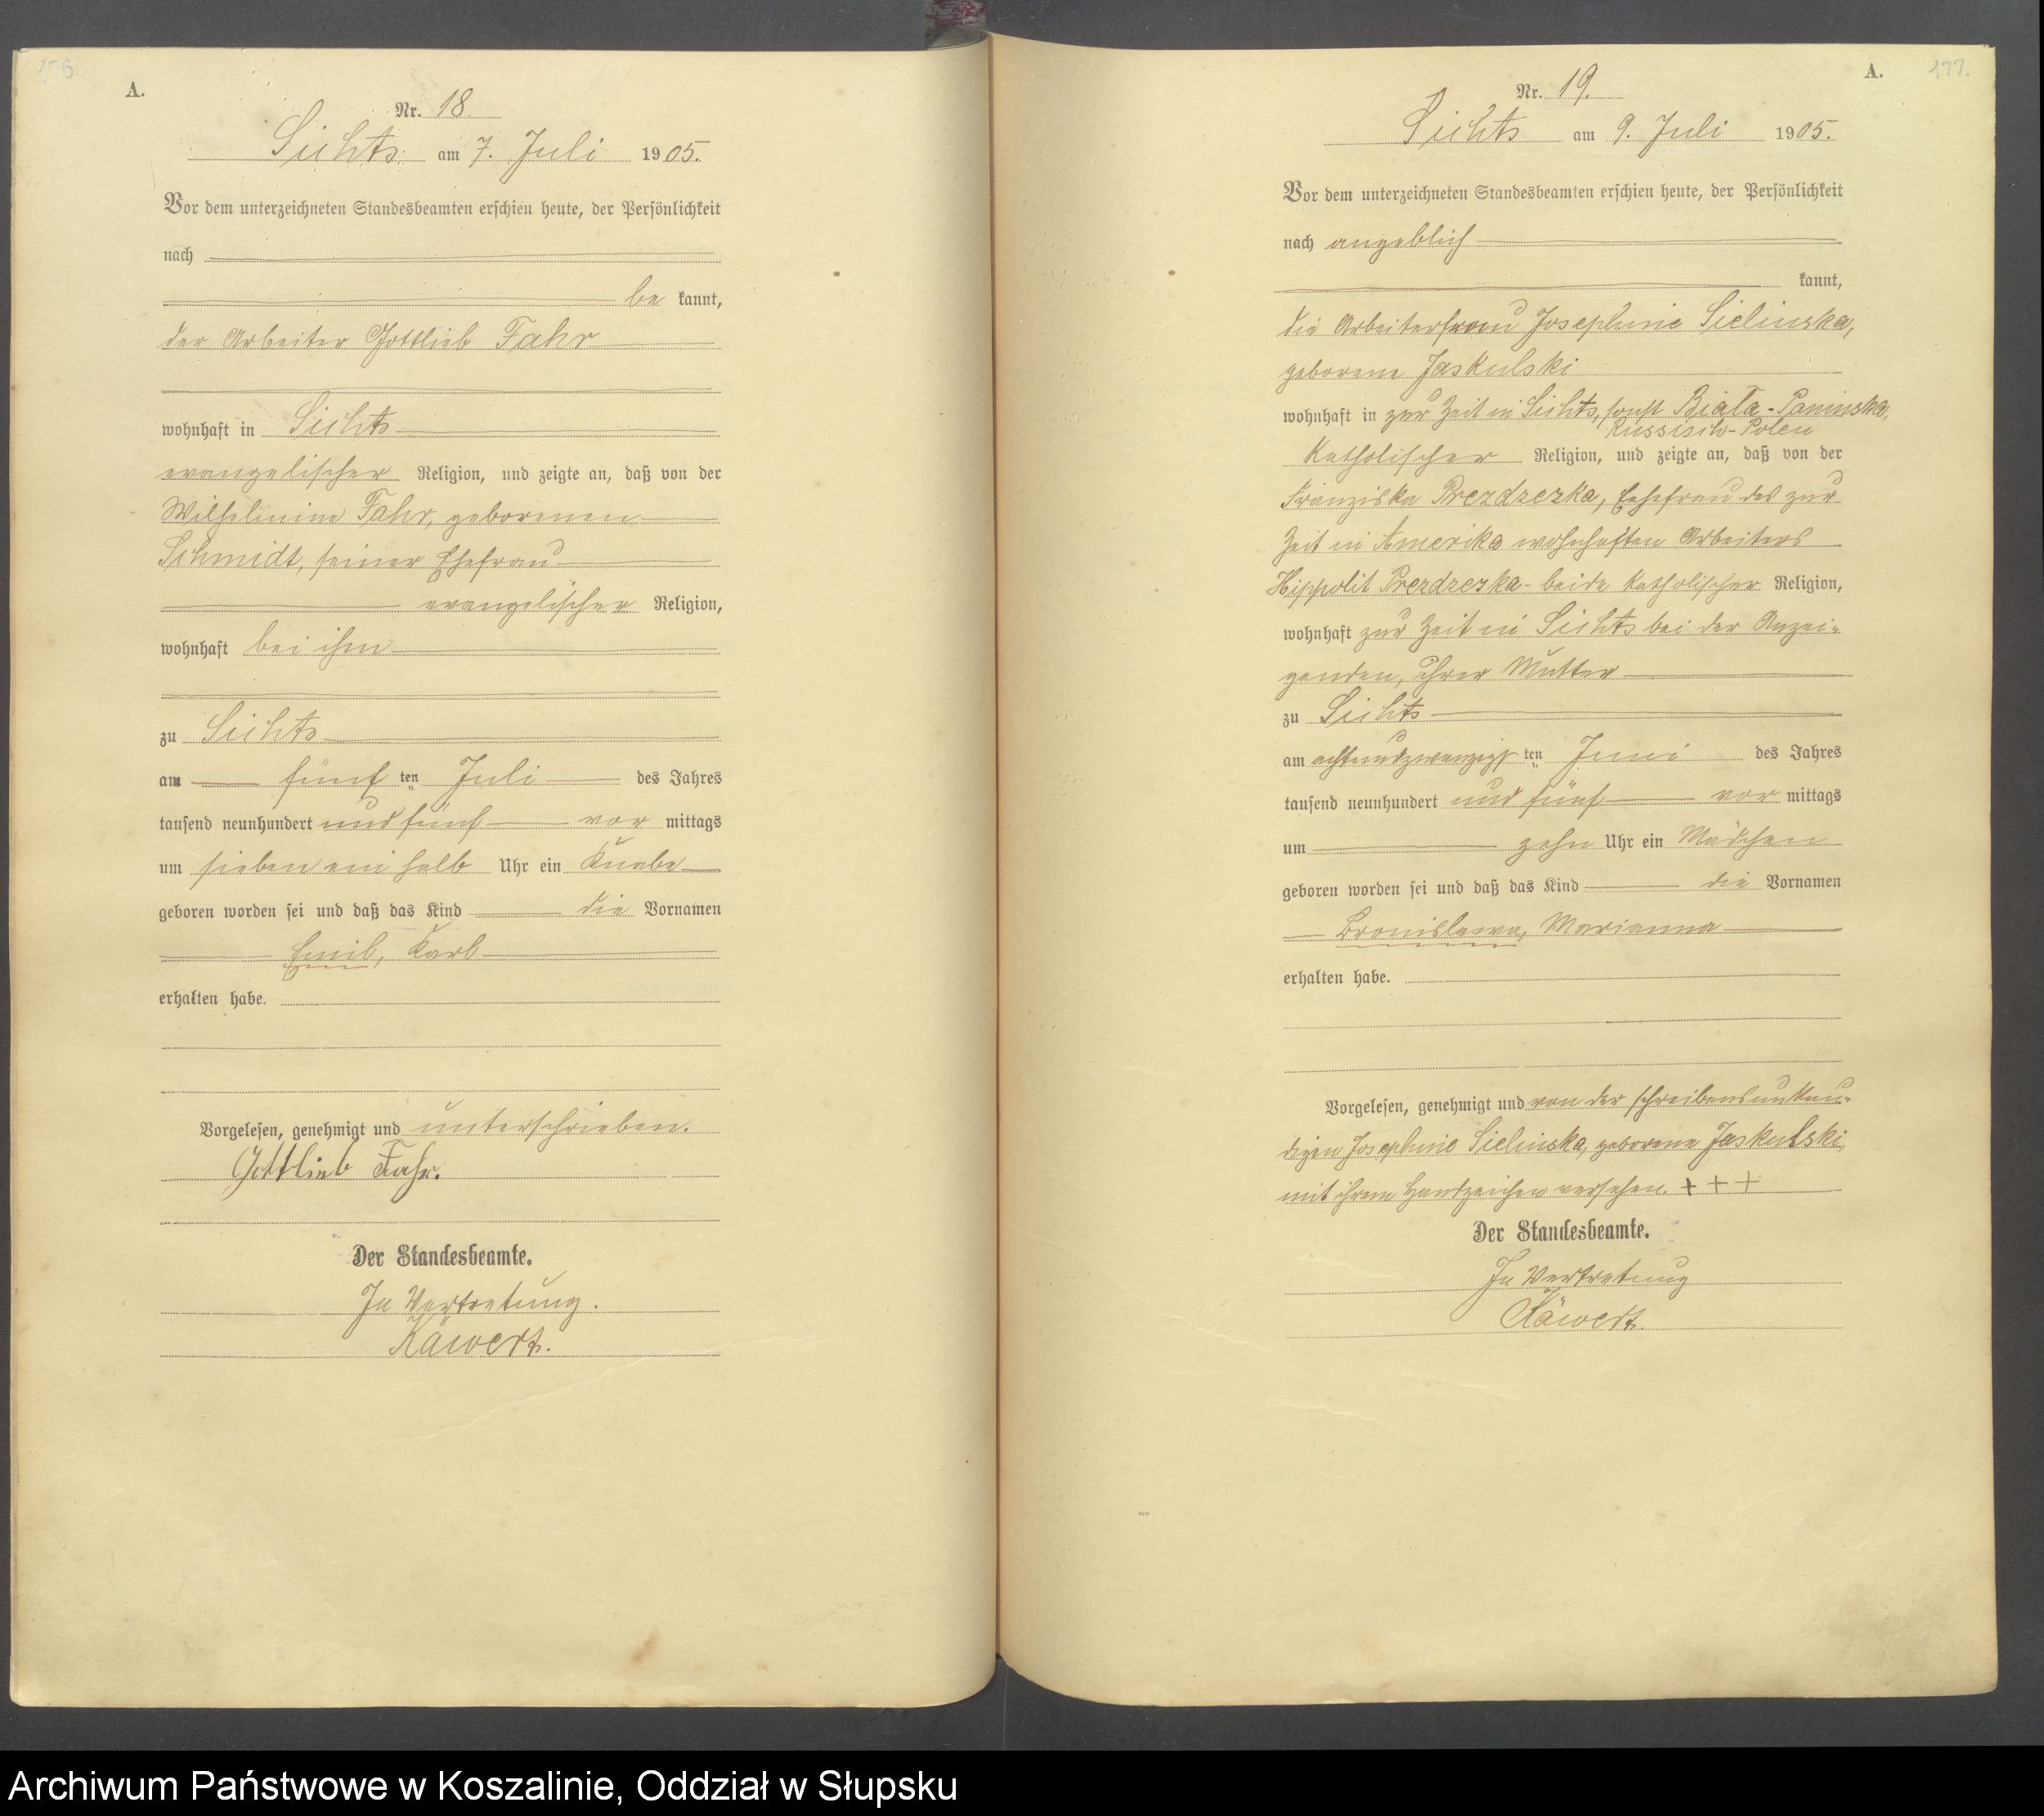 176.
A.
Nr. 18.
Sichts am 7. Juli 1905.
Vor dem unterzeichneten Standesbeamten erschien heute, der Persönlichkeit
nach
be kannt,
der Arbeiter Gottlieb Fahr
wohnhaft in Sichts
evangelischer Religion, und zeigte an, daß von der
Wilhelmine Fahr, geborenen
Schmidt, seiner Ehefrau
evangelischer Religion,
wohnhaft bei ihm
zu Sichts
am fünf ten Juli des Jahres
tausend neunhundert und fünf vor mittags
um sieben ein halb Uhr ein Knabe
geboren worden sei und daß das Kind die Vornamen
Emil, Karl
erhalten habe.
Vorgelesen, genehmigt und unterschrieben.
Gottlieb Fahr.
Der Standesbeamte.
In Vertretung.
Käwert.
177.
A.
Nr. 19.
Sichts am 9. Juli 1905.
Vor dem unterzeichneten Standesbeamten erschien heute, der Persönlichkeit
nach angeblich
kannt,
die Arbeiterfrau Josephine Sielinska,
geborene Jaskulski
wohnhaft in zur Zeit in Sichts, sonst Biala-Paninska,
Russisch-Polen
katholischer Religion, und zeigte an, daß von der
Franziska Prezdzezka, Ehefrau des zur
Zeit in Amerika wohnhaften Arbeiters
Hippolit Prezdzezka - beide katholischer Religion,
wohnhaft zur Zeit in Sichts bei der Anzei-
genden, ihrer Mutter
zu Sichts
am achtundzwanzigs ten Juni des Jahres
tausend neunhundert und fünf vor mittags
um zehn Uhr ein Mädchen
geboren worden sei und daß das Kind die Vornamen
Bronislawa, Marianna
erhalten habe.
Vorgelesen, genehmigt und von der schreibensunkun-
digen Josephine Sielinska, geborene Jaskulski,
mit ihrem Handzeichen versehen. + + +
Der Standesbeamte.
In Vertretung
Käwert.
Archiwum Państwowe w Koszalinie, Oddział w Słupsku